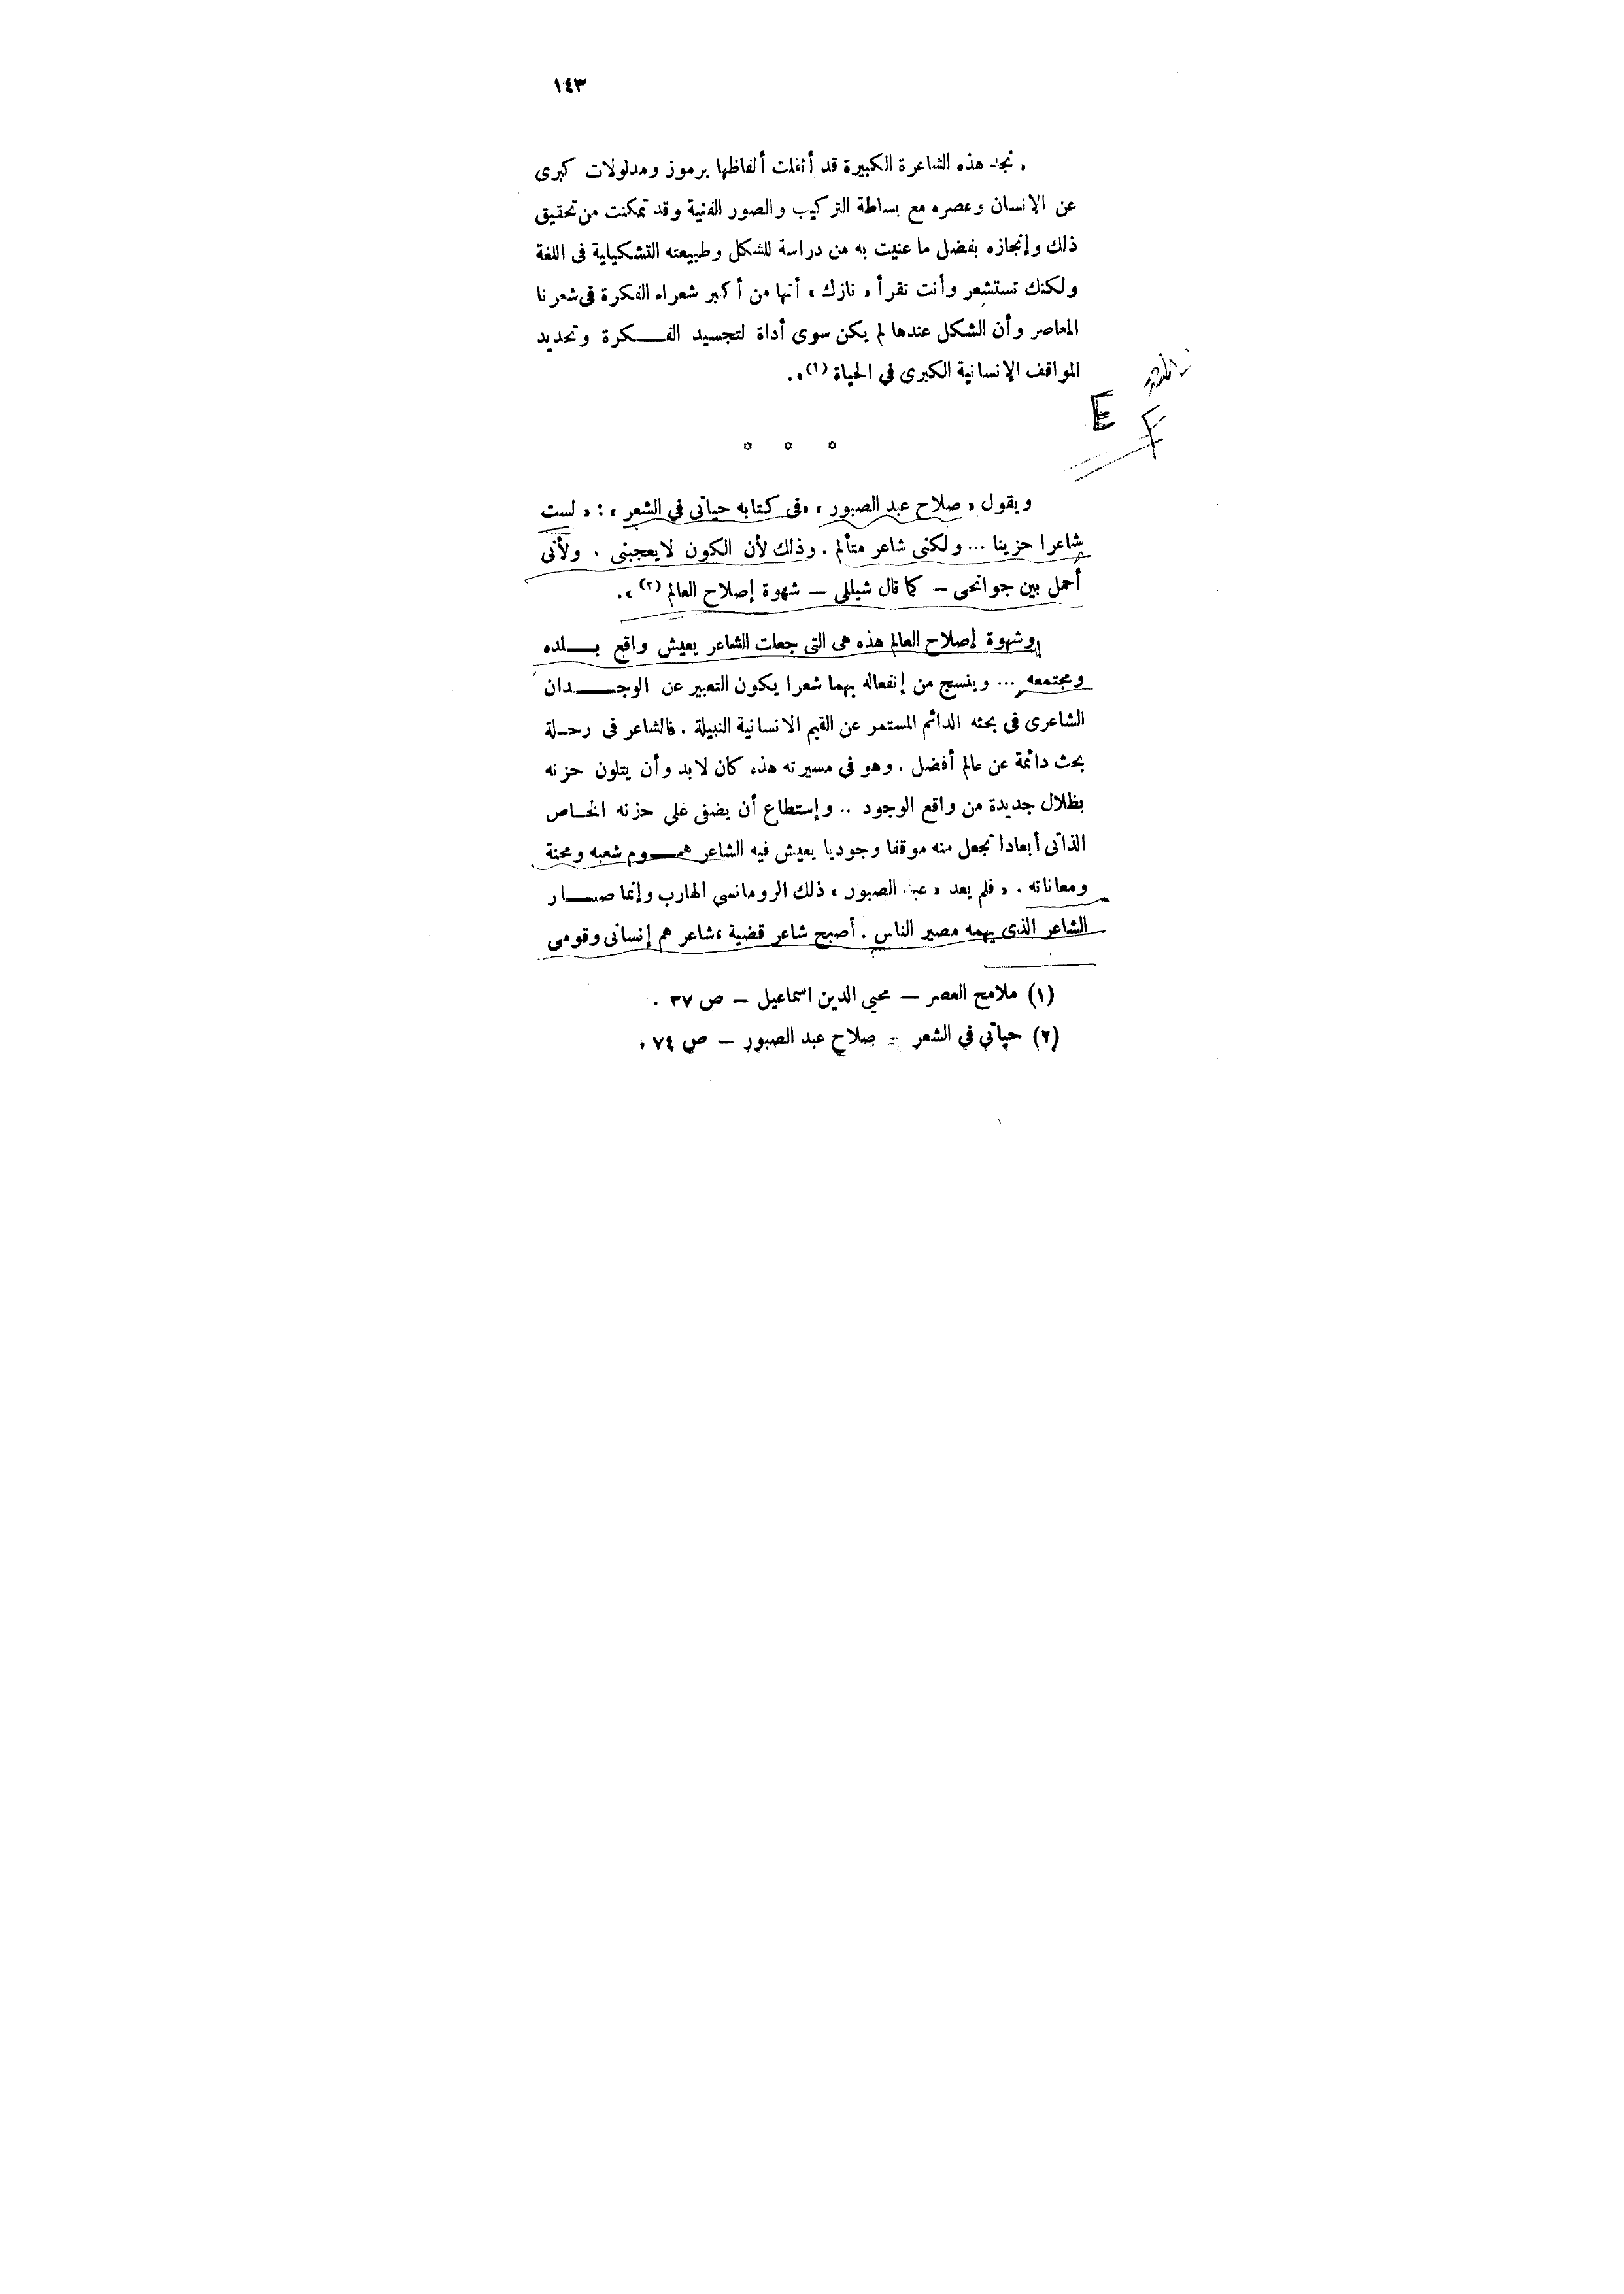 ١٤٣
« نجد هذه الشاعرة الكبيرة قد أثقلت ألفاظها برموز ومدلولات كبرى
عن الإنسان وعصره مع بساطة التركيب والصور الفنية وقد تمكنت من تحقيق
ذلك وإنجازه بفضل ما عنيت به من دراسة للشكل وطبيعته التشكيلية فى اللغة
ولكنك تستشعر وأنت تقرأ « نازك » أنها من أكبر شعراء الفكرة فى شعرنا
المعاصر وأن الشكل عندها لم يكن سوى أداة لتجسيد الفـكرة وتحديد
المواقف الإنسانية الكبرى فى الحياة (١) » .
E
F
* * *
ويقول « صلاح عبد الصبور » « فى كتابه حياتى في الشعر » : « لست
شاعرا حزينا ... ولكنى شاعر متألم . وذلك لأن الكون لايعجبنى . ولأنى
أحمل بين جوانحى — كما قال شيللى — شهوة إصلاح العالم (٢) » .
وشهوة إصلاح العالم هذه هى التى جعلت الشاعر يعيش واقع بـلده
ومجتمعه ... وينسج من إنفعاله بهما شعرا يكون التعبير عن الوجـدان
الشاعرى فى بحثه الدائم المستمر عن القيم الانسانية النبيلة . فالشاعر فى رحـلة
بحث دائمة عن عالم أفضل . وهو فى مسيرته هذه كان لابد وأن يتلون حزنه
بظلال جديدة من واقع الوجود .. وإستطاع أن يضفى على حزنه الخـاص
الذاتى أبعادا تجعل منه موقفا وجوديا يعيش فيه الشاعر همـوم شعبه ومحنة
ومعاناته . « فلم يعد « عبد الصبور » ذلك الرومانسي الهارب وإنما صـار
الشاعر الذى يهمه مصير الناس . أصبح شاعر قضية ، شاعر هم إنسانى وقومى
(١) ملامح العصر — محيي الدين اسماعيل — ص ٣٧ .
(٢) حياتي في الشعر — صلاح عبد الصبور — ص ٧٤ .